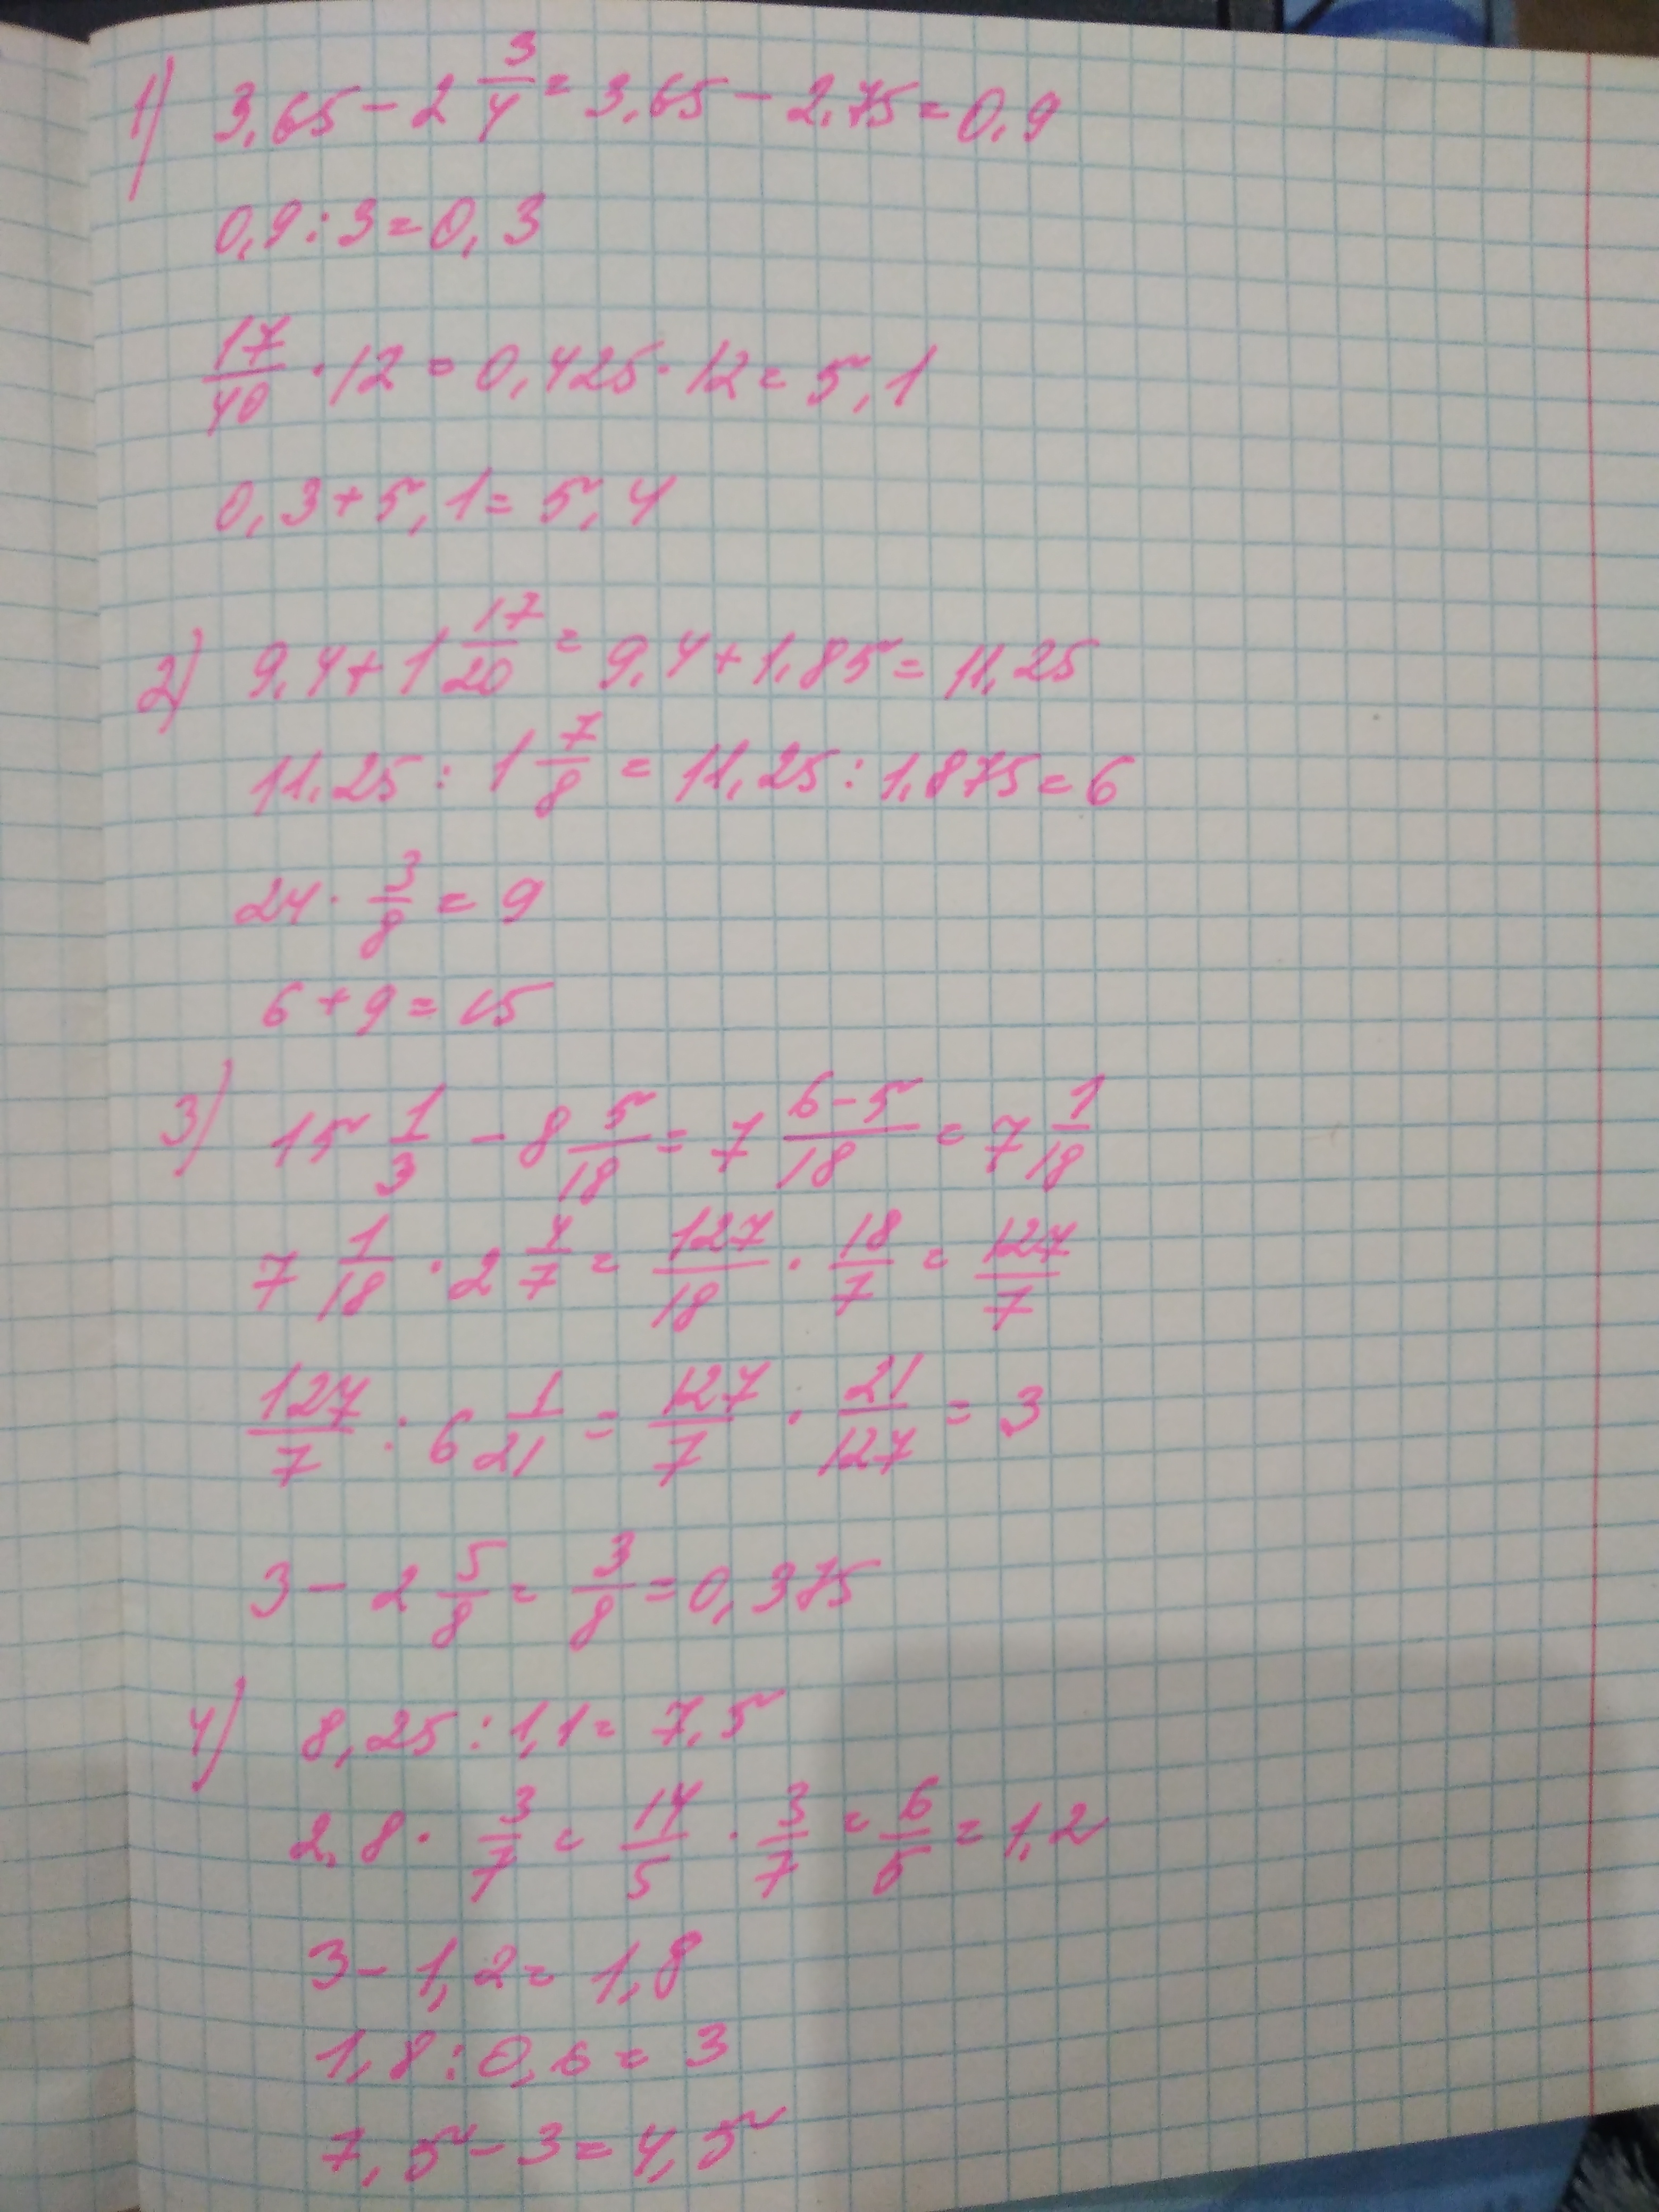 1) 3,65 - 2 3/4 = 3,65 - 2,75 = 0,9
0,9 : 3 = 0,3
17/40 · 12 = 0,425 · 12 = 5,1
0,3 + 5,1 = 5,4
2) 9,4 + 1 17/20 = 9,4 + 1,85 = 11,25
11,25 : 1 7/8 = 11,25 : 1,875 = 6
24 · 3/8 = 9
6 + 9 = 15
3) 15 1/3 - 8 5/18 = 7 6-5/18 = 7 1/18
7 1/18 · 2 4/7 = 127/18 · 18/7 = 127/7
127/7 : 6 1/21 = 127/7 · 21/127 = 3
3 - 2 5/8 = 3/8 = 0,375
4) 8,25 : 1,1 = 7,5
2,8 · 3/7 = 14/5 · 3/7 = 6/5 = 1,2
3 - 1,2 = 1,8
1,8 : 0,6 = 3
7,5 - 3 = 4,5